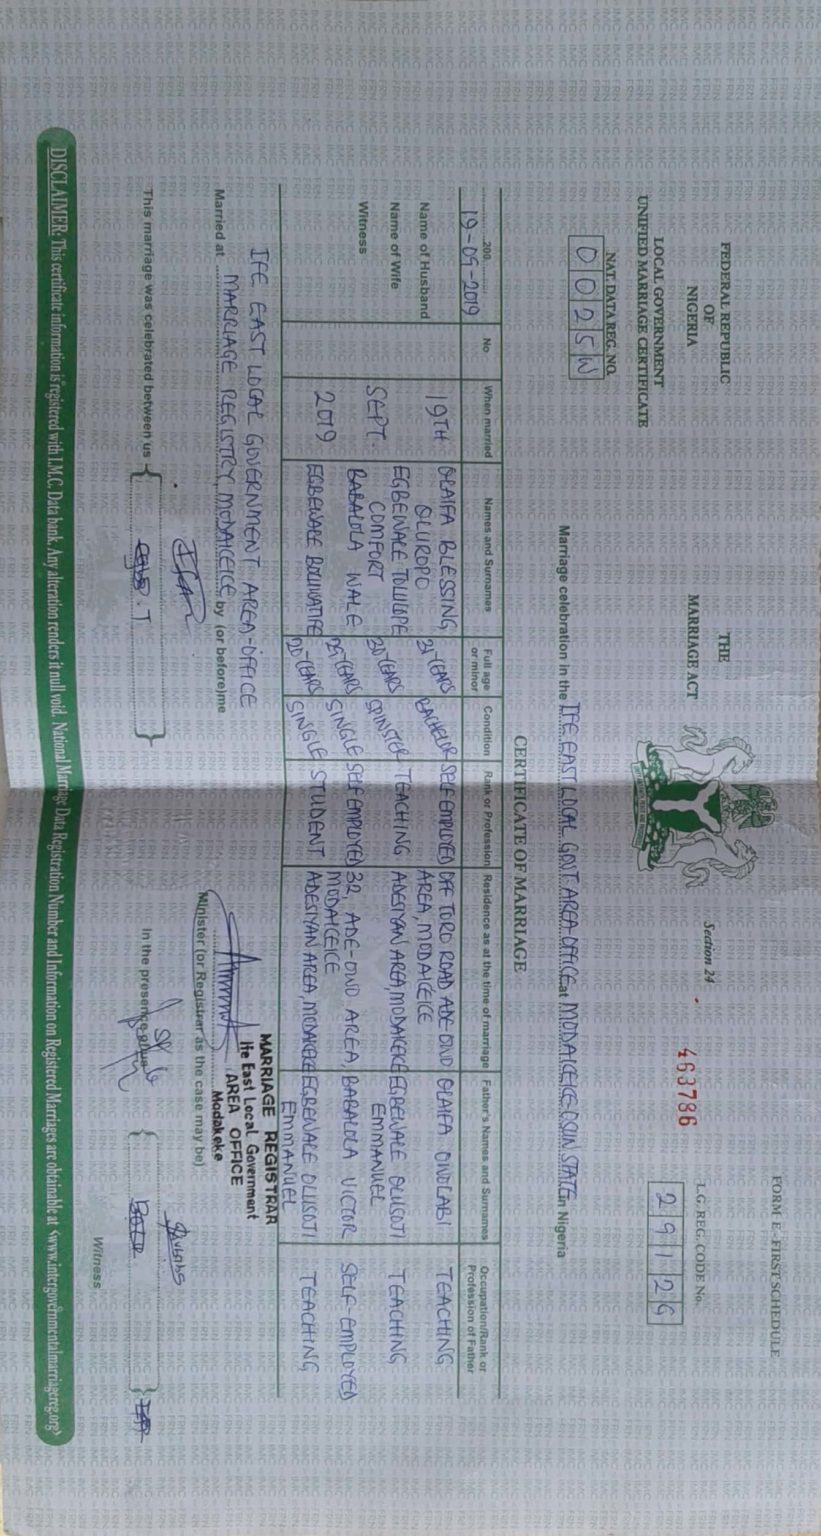 FORM E - FIRST SCHEDULE
FEDERAL REPUBLIC
OF
NIGERIA
THE
MARRIAGE ACT
Section 24
463786
L.G. REG. CODE No.
LOCAL GOVERNMENT
UNIFIED MARRIAGE CERTIFICATE
NAT. DATA REG. NO.
0025W
Marriage celebration in the IFE EAST LOCAL GOVT. AREA OFFICE at MODAKEKE OSUN STATE in Nigeria
CERTIFICATE OF MARRIAGE
200 No When married Names and Surnames Full age or minor Condition Rank or Profession Residence as at the time of marriage Father's Names and Surnames Occupation/Rank or Profession of Father
19-09-2019
Name of Husband 19TH OLAIFA BLESSING OLUROPO 31 YEARS BACHELOR SELF EMPLOYED OFF TORO ROAD ADE OWO AREA, MODAKEKE OLAIFA OWOLABI TEACHING
Name of Wife SEPT. EGBEWALE TOLULOPE COMFORT 30 YEARS SPINSTER TEACHING ADESIYAN AREA, MODAKEKE EGBEWALE OLUSOTI EMMANUEL TEACHING
Witness 2019 BABALOLA WALE SINGLE SELF EMPLOYED 32, ADE-OWO AREA, MODAKEKE BABALOLA VICTOR SELF-EMPLOYED
EGBEWALE 20 YEARS SINGLE STUDENT ADESIYAN AREA, MODAKEKE EGBEWALE OLUSOTI EMMANUEL TEACHING
IFE EAST LOCAL GOVERNMENT AREA OFFICE
Married at MARRIAGE REGISTRY, MODAKEKE by (or before) me
MARRIAGE REGISTRAR
Ife East Local Government
AREA OFFICE
Modakeke
Minister (or Registrar as the case may be)
This marriage was celebrated between us
In the presence of us
Witness
DISCLAIMER: This certificate information is registered with I.M.C. Data bank. Any alteration renders it null void. National Marriage Data Registration Number and Information on Registered Marriages are obtainable at <www.intergovernmentalmarriagereg.org>